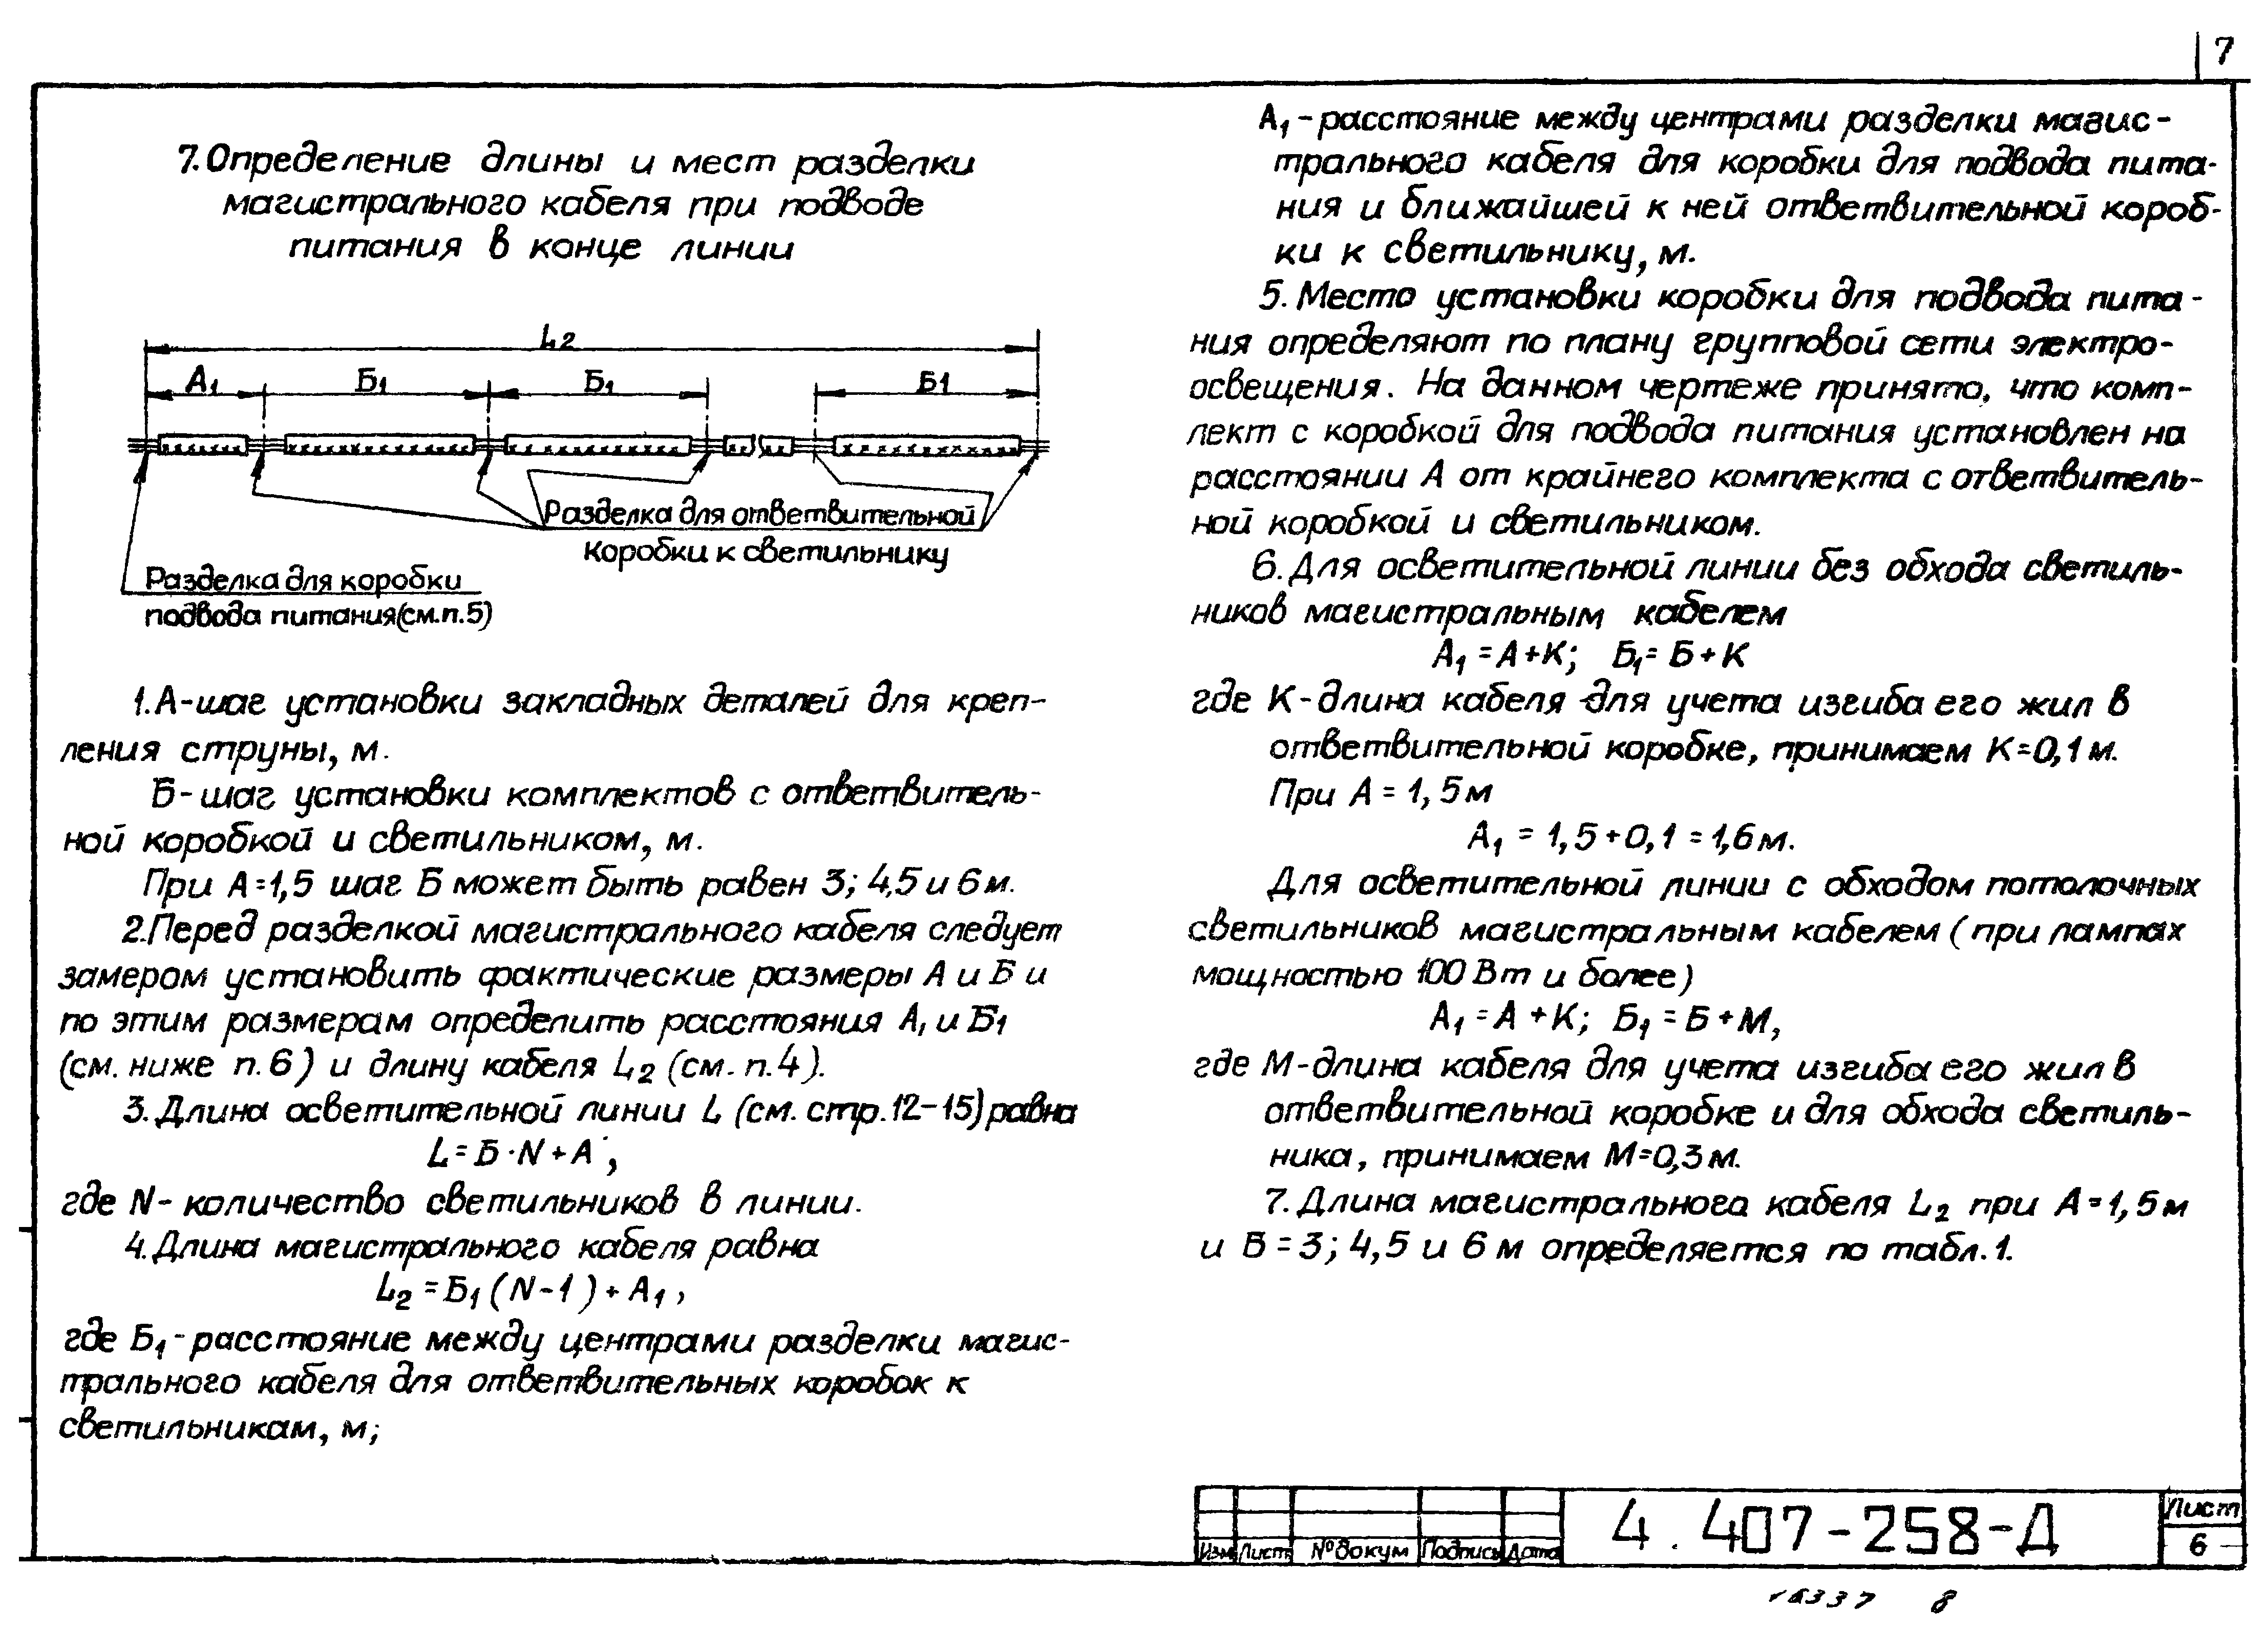 7
7. Определение длины и мест разделки
магистрального кабеля при подводе
питания в конце линии
L2
А1 Б1 Б1 Б1
Разделка для ответвительной
коробки к светильнику
Разделка для коробки
подвода питания (см.п.5)
1. А-шаг установки закладных деталей для креп-
ления струны, м.
Б-шаг установки комплектов с ответвитель-
ной коробкой и светильником, м.
При А=1,5 шаг Б может быть равен 3; 4,5 и 6 м.
2. Перед разделкой магистрального кабеля следует
замером установить фактические размеры А и Б и
по этим размерам определить расстояния А1 и Б1
(см. ниже п.6) и длину кабеля L2 (см. п.4).
3. Длина осветительной линии L (см. стр.12-15) равна
L=Б·N+А,
где N- количество светильников в линии.
4. Длина магистрального кабеля равна
L2=Б1(N-1)+А1,
где Б1-расстояние между центрами разделки магис-
трального кабеля для ответвительных коробок к
светильникам, м;
А1-расстояние между центрами разделки магис-
трального кабеля для коробки для подвода пита-
ния и ближайшей к ней ответвительной короб-
ки к светильнику, м.
5. Место установки коробки для подвода пита-
ния определяют по плану групповой сети электро-
освещения. На данном чертеже принято, что комп-
лект с коробкой для подвода питания установлен на
расстоянии А от крайнего комплекта с ответвитель-
ной коробкой и светильником.
6. Для осветительной линии без обхода светиль-
ников магистральным кабелем
А1=А+К; Б1=Б+К
где К-длина кабеля для учета изгиба его жил в
ответвительной коробке, принимаем К=0,1 м.
При А=1,5 м
А1=1,5+0,1=1,6 м.
Для осветительной линии с обходом потолочных
светильников магистральным кабелем (при лампах
мощностью 100 Вт и более)
А1=А+К; Б1=Б+М,
где М-длина кабеля для учета изгиба его жил в
ответвительной коробке и для обхода светиль-
ника, принимаем М=0,3 м.
7. Длина магистрального кабеля L2 при А=1,5 м
и Б=3; 4,5 и 6 м определяется по табл.1.
Изм Лист № докум Подпись Дата
4.407-258-Д
Лист
6
16337 8